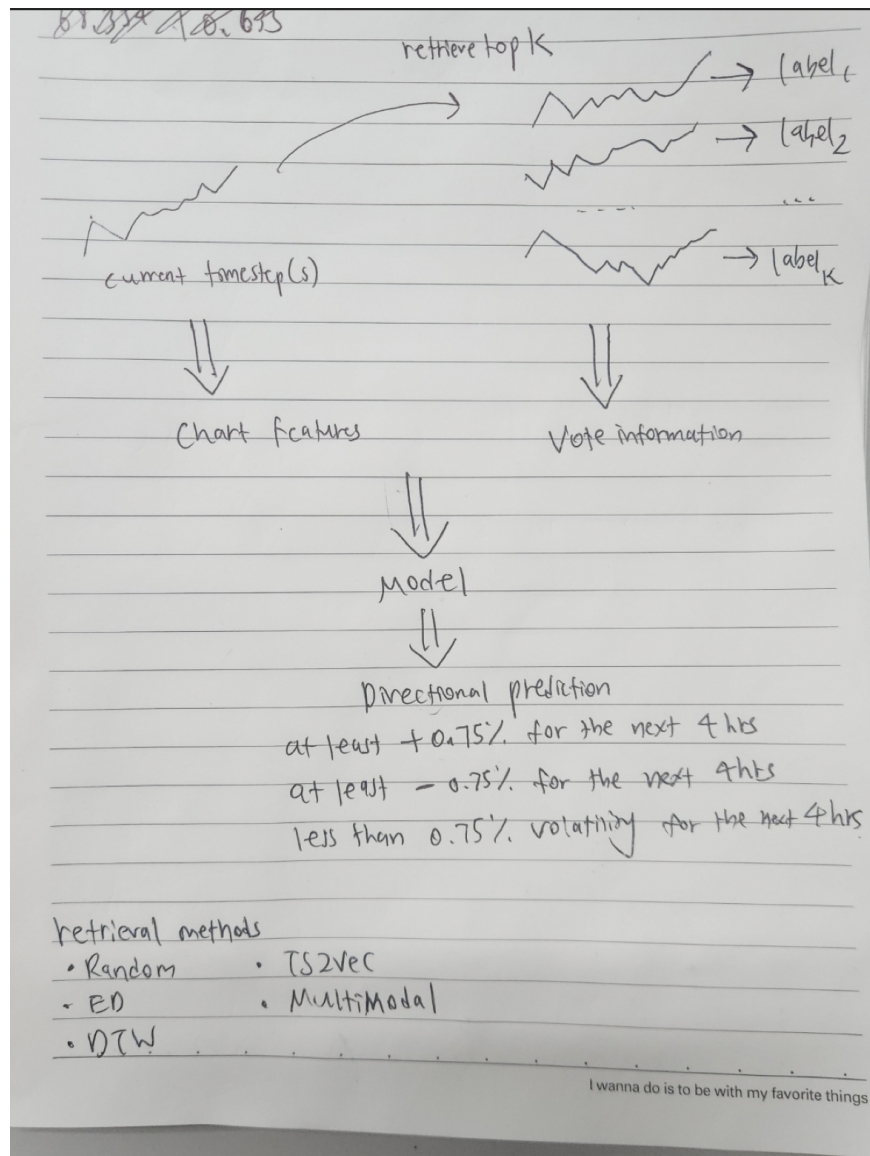 retrieve top K
→ label₁
→ label₂
- - - - ...
→ label_K
current timestep(s)
Chart features
Vote information
Model
Directional prediction
at least +0.75% for the next 4 hrs
at least -0.75% for the next 4hrs
less than 0.75% volatility for the next 4hrs
retrieval methods
• Random • TS2Vec
• ED • MultiModal
• DTW
I wanna do is to be with my favorite things